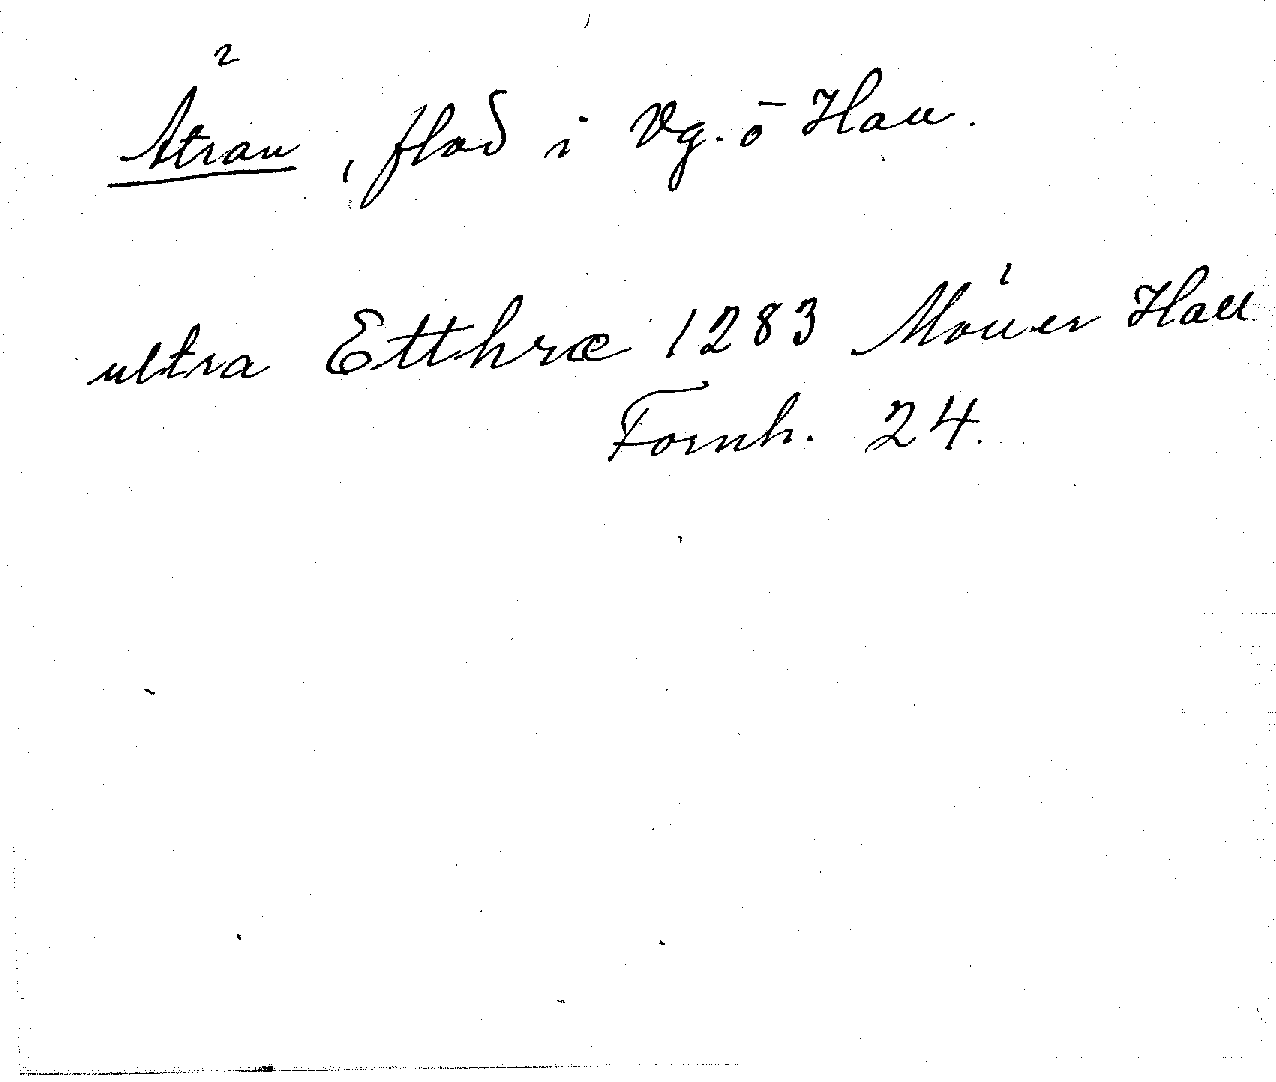 Ätran, flod i Vg. o Hall.
ultra Etthræ 1283 Möller Hall
Fornh. 24.